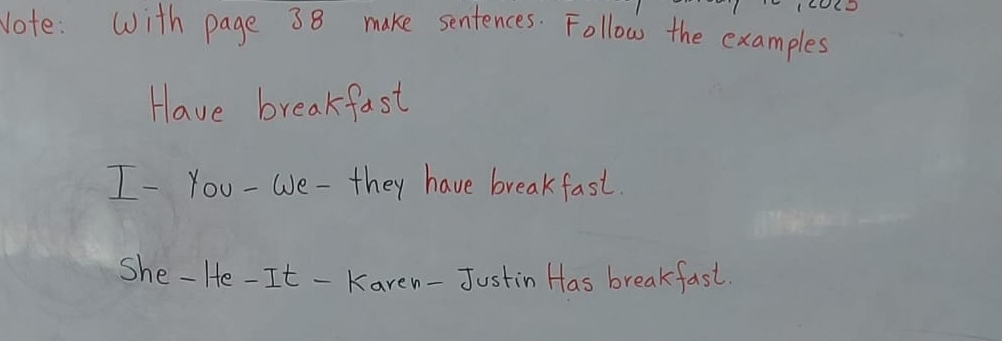 Note: With page 38 make sentences. Follow the examples
Have breakfast
I - You - We - they have breakfast.
She - He - It - Karen - Justin Has breakfast.